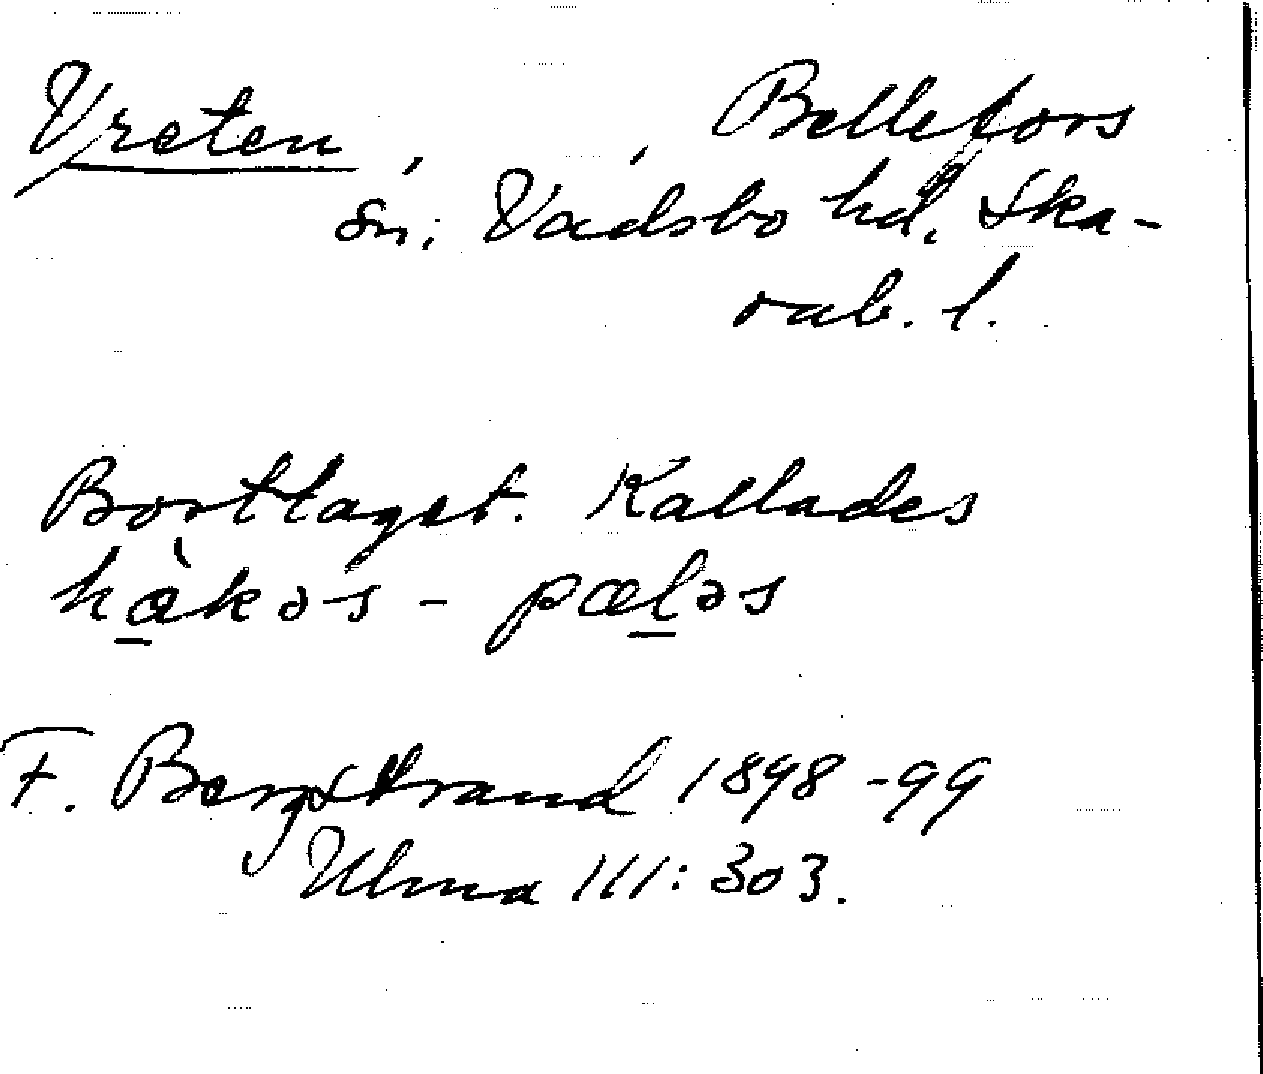 Vreten, , Bellefors
sn. Vadsbo hd. Ska-
rab. l.
Borttaget. Kallades
hàkəs - pæləs
F. Bergstrand 1898-99
Ulma 111:303.